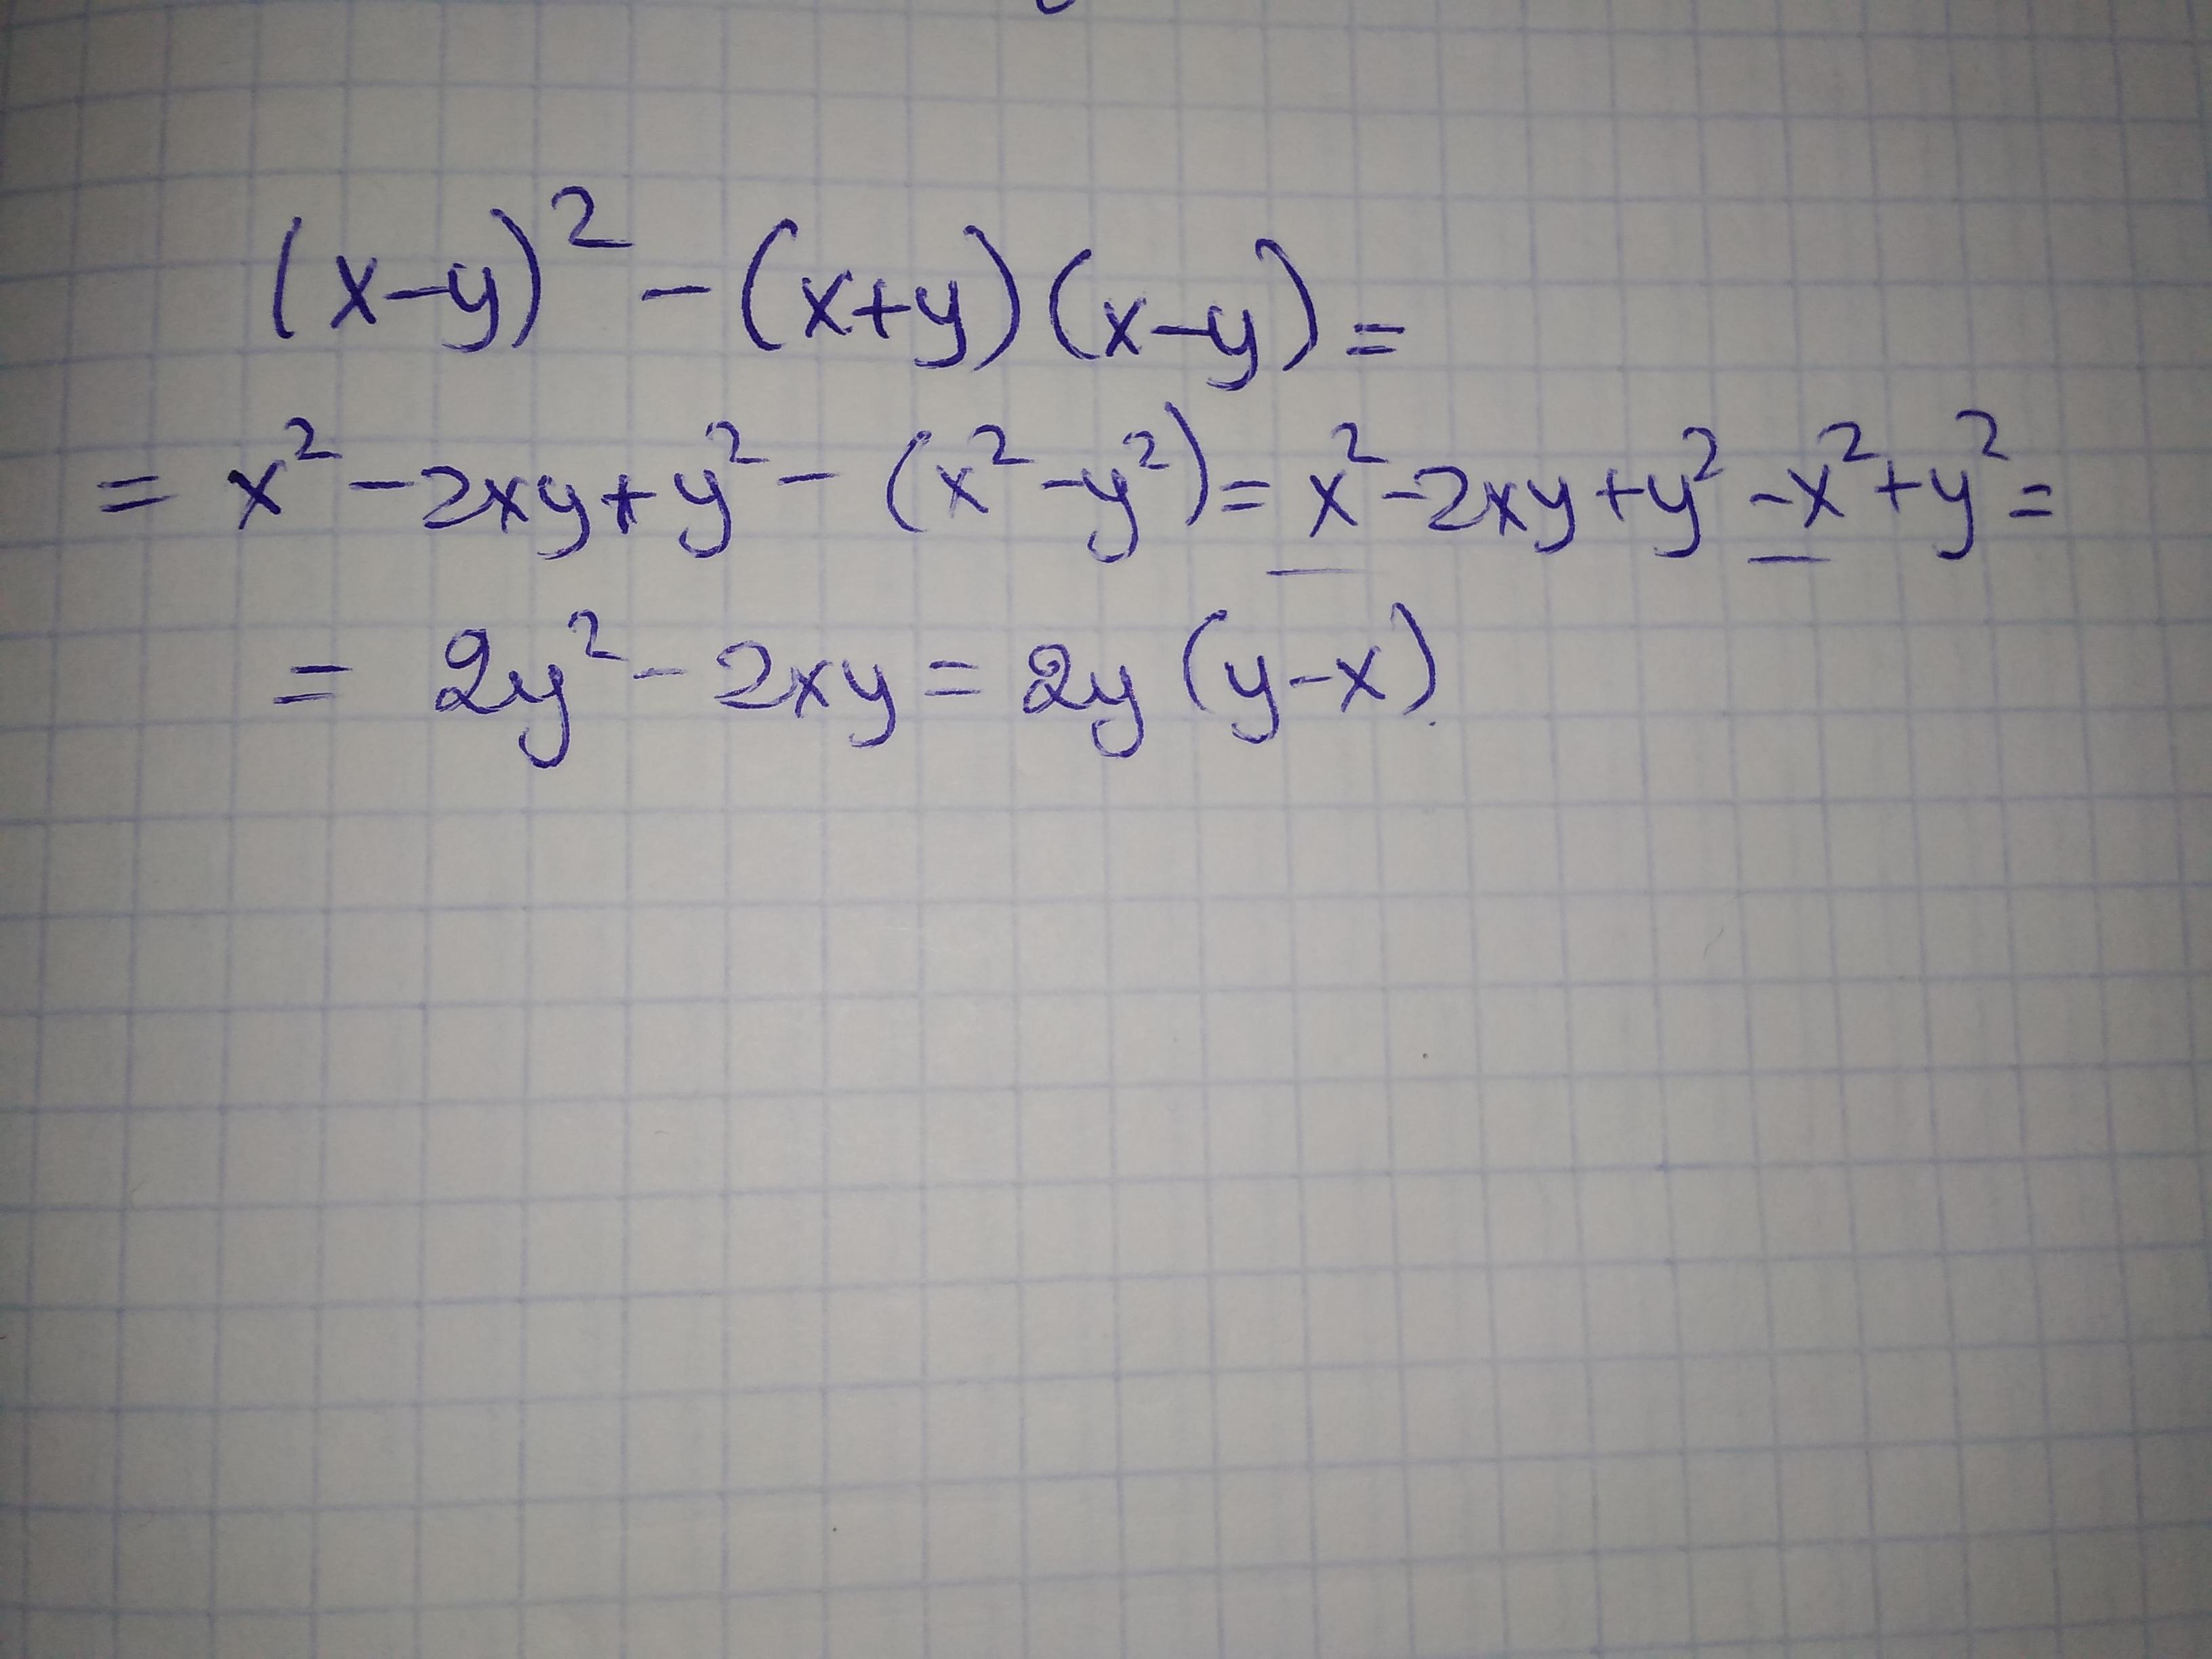 (x-y)² - (x+y)(x-y) =
= x² - 2xy + y² - (x² - y²) = x² - 2xy + y² - x² + y² =
= 2y² - 2xy = 2y (y-x).